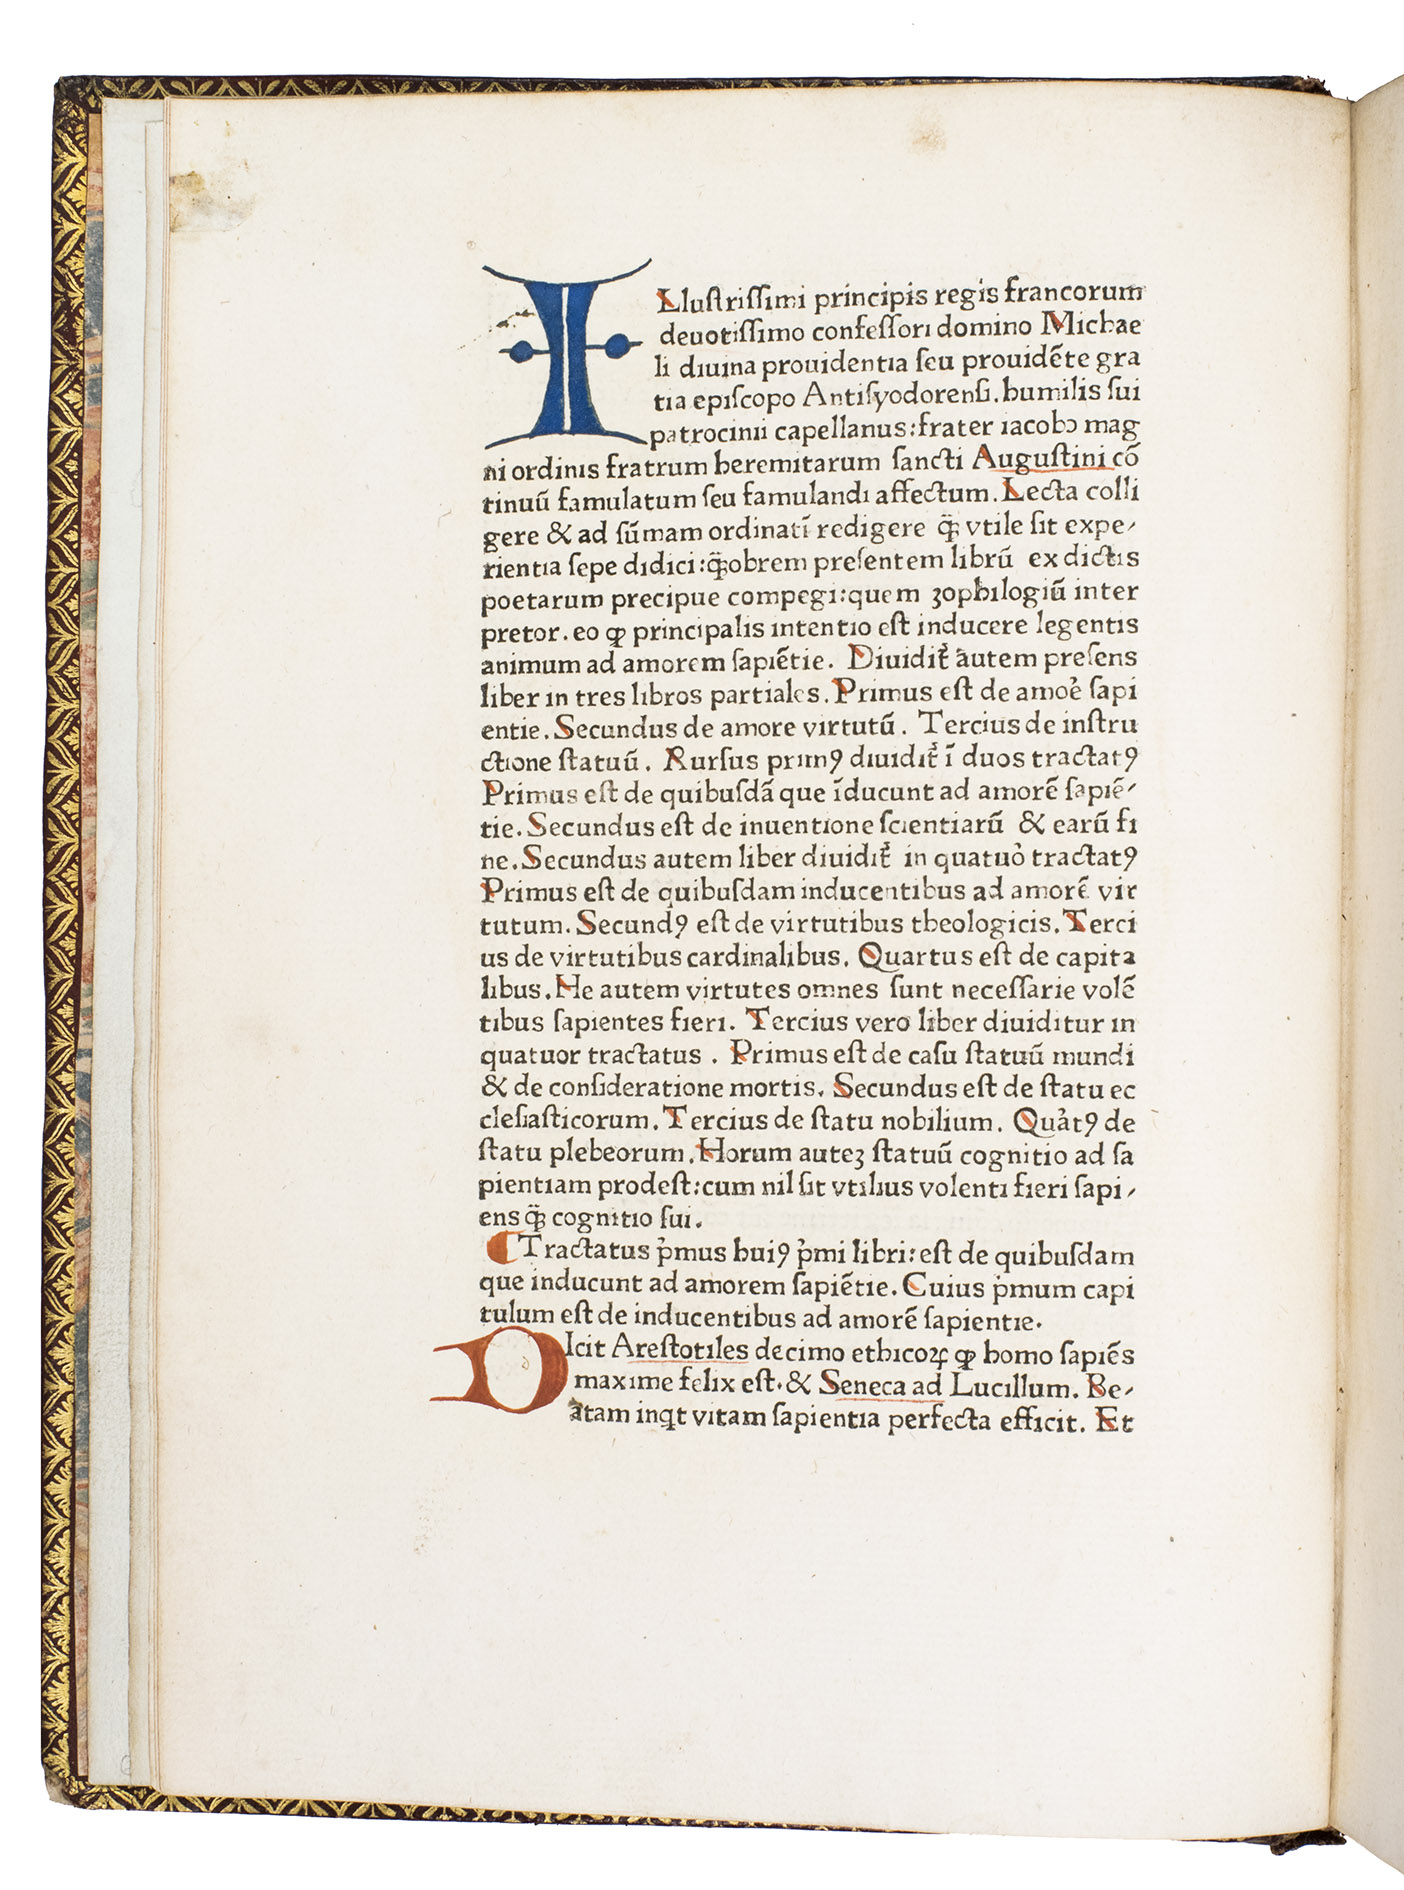 ILlustrissimi principis regis francorum
deuotissimo confessori domino Michae
li diuina prouidentia seu prouidēte gra
tia episcopo Antisyodorensi. humilis sui
patrocinii capellanus: frater iacobo mag
ni ordinis fratrum heremitarum sancti Augustini cō
tinuū famulatum seu famulandi affectum. Lecta colli
gere & ad sūmam ordinatī redigere q̄ꝫ vtile sit expe-
rientia sepe didici: q̄ꝫobrem presentem librū ex dictis
poetarum precipue compegi: quem zophilogiū inter
pretor. eo ꝙ principalis intentio est inducere legentis
animum ad amorem sapiētie. Diuidit᷑ autem presens
liber in tres libros partiales. Primus est de amoꝛ̉e sapi
entie. Secundus de amore virtutū. Tercius de instru
ctione statuū. Rursus primꝰ diuidit᷑ ī duos tractatꝰ
Primus est de quibusdā que īducunt ad amorē sapiē-
tie. Secundus est de inuentione scientiarū & earū fi
ne. Secundus autem liber diuidit᷑ in quatuo̓ tractatꝰ
Primus est de quibusdam inducentibus ad amorē vir
tutum. Secundꝰ est de virtutibus theologicis. Terci
us de virtutibus cardinalibus. Quartus est de capita
libus. He autem virtutes omnes sunt necessarie volē
tibus sapientes fieri. Tercius vero liber diuiditur in
quatuor tractatus. Primus est de casu statuū mundi
& de consideratione mortis. Secundus est de statu ec
clesiasticorum. Tercius de statu nobilium. Qua̓tꝰ de
statu plebeorum. Horum auteꝫ statuū cognitio ad sa
pientiam prodest: cum nil sit vtilius volenti fieri sapi-
ens q̄ꝫ cognitio sui.
¶ Tractatus p̓mus huiꝰ p̓mi libri: est de quibusdam
que inducunt ad amorem sapiētie. Cuius p̓mum capi
tulum est de inducentibus ad amorē sapientie.
DIcit Arestotiles decimo ethicoꝝ ꝙ homo sapiēs
maxime felix est. & Seneca ad Lucillum. Be-
atam inq̓t vitam sapientia perfecta efficit. Et